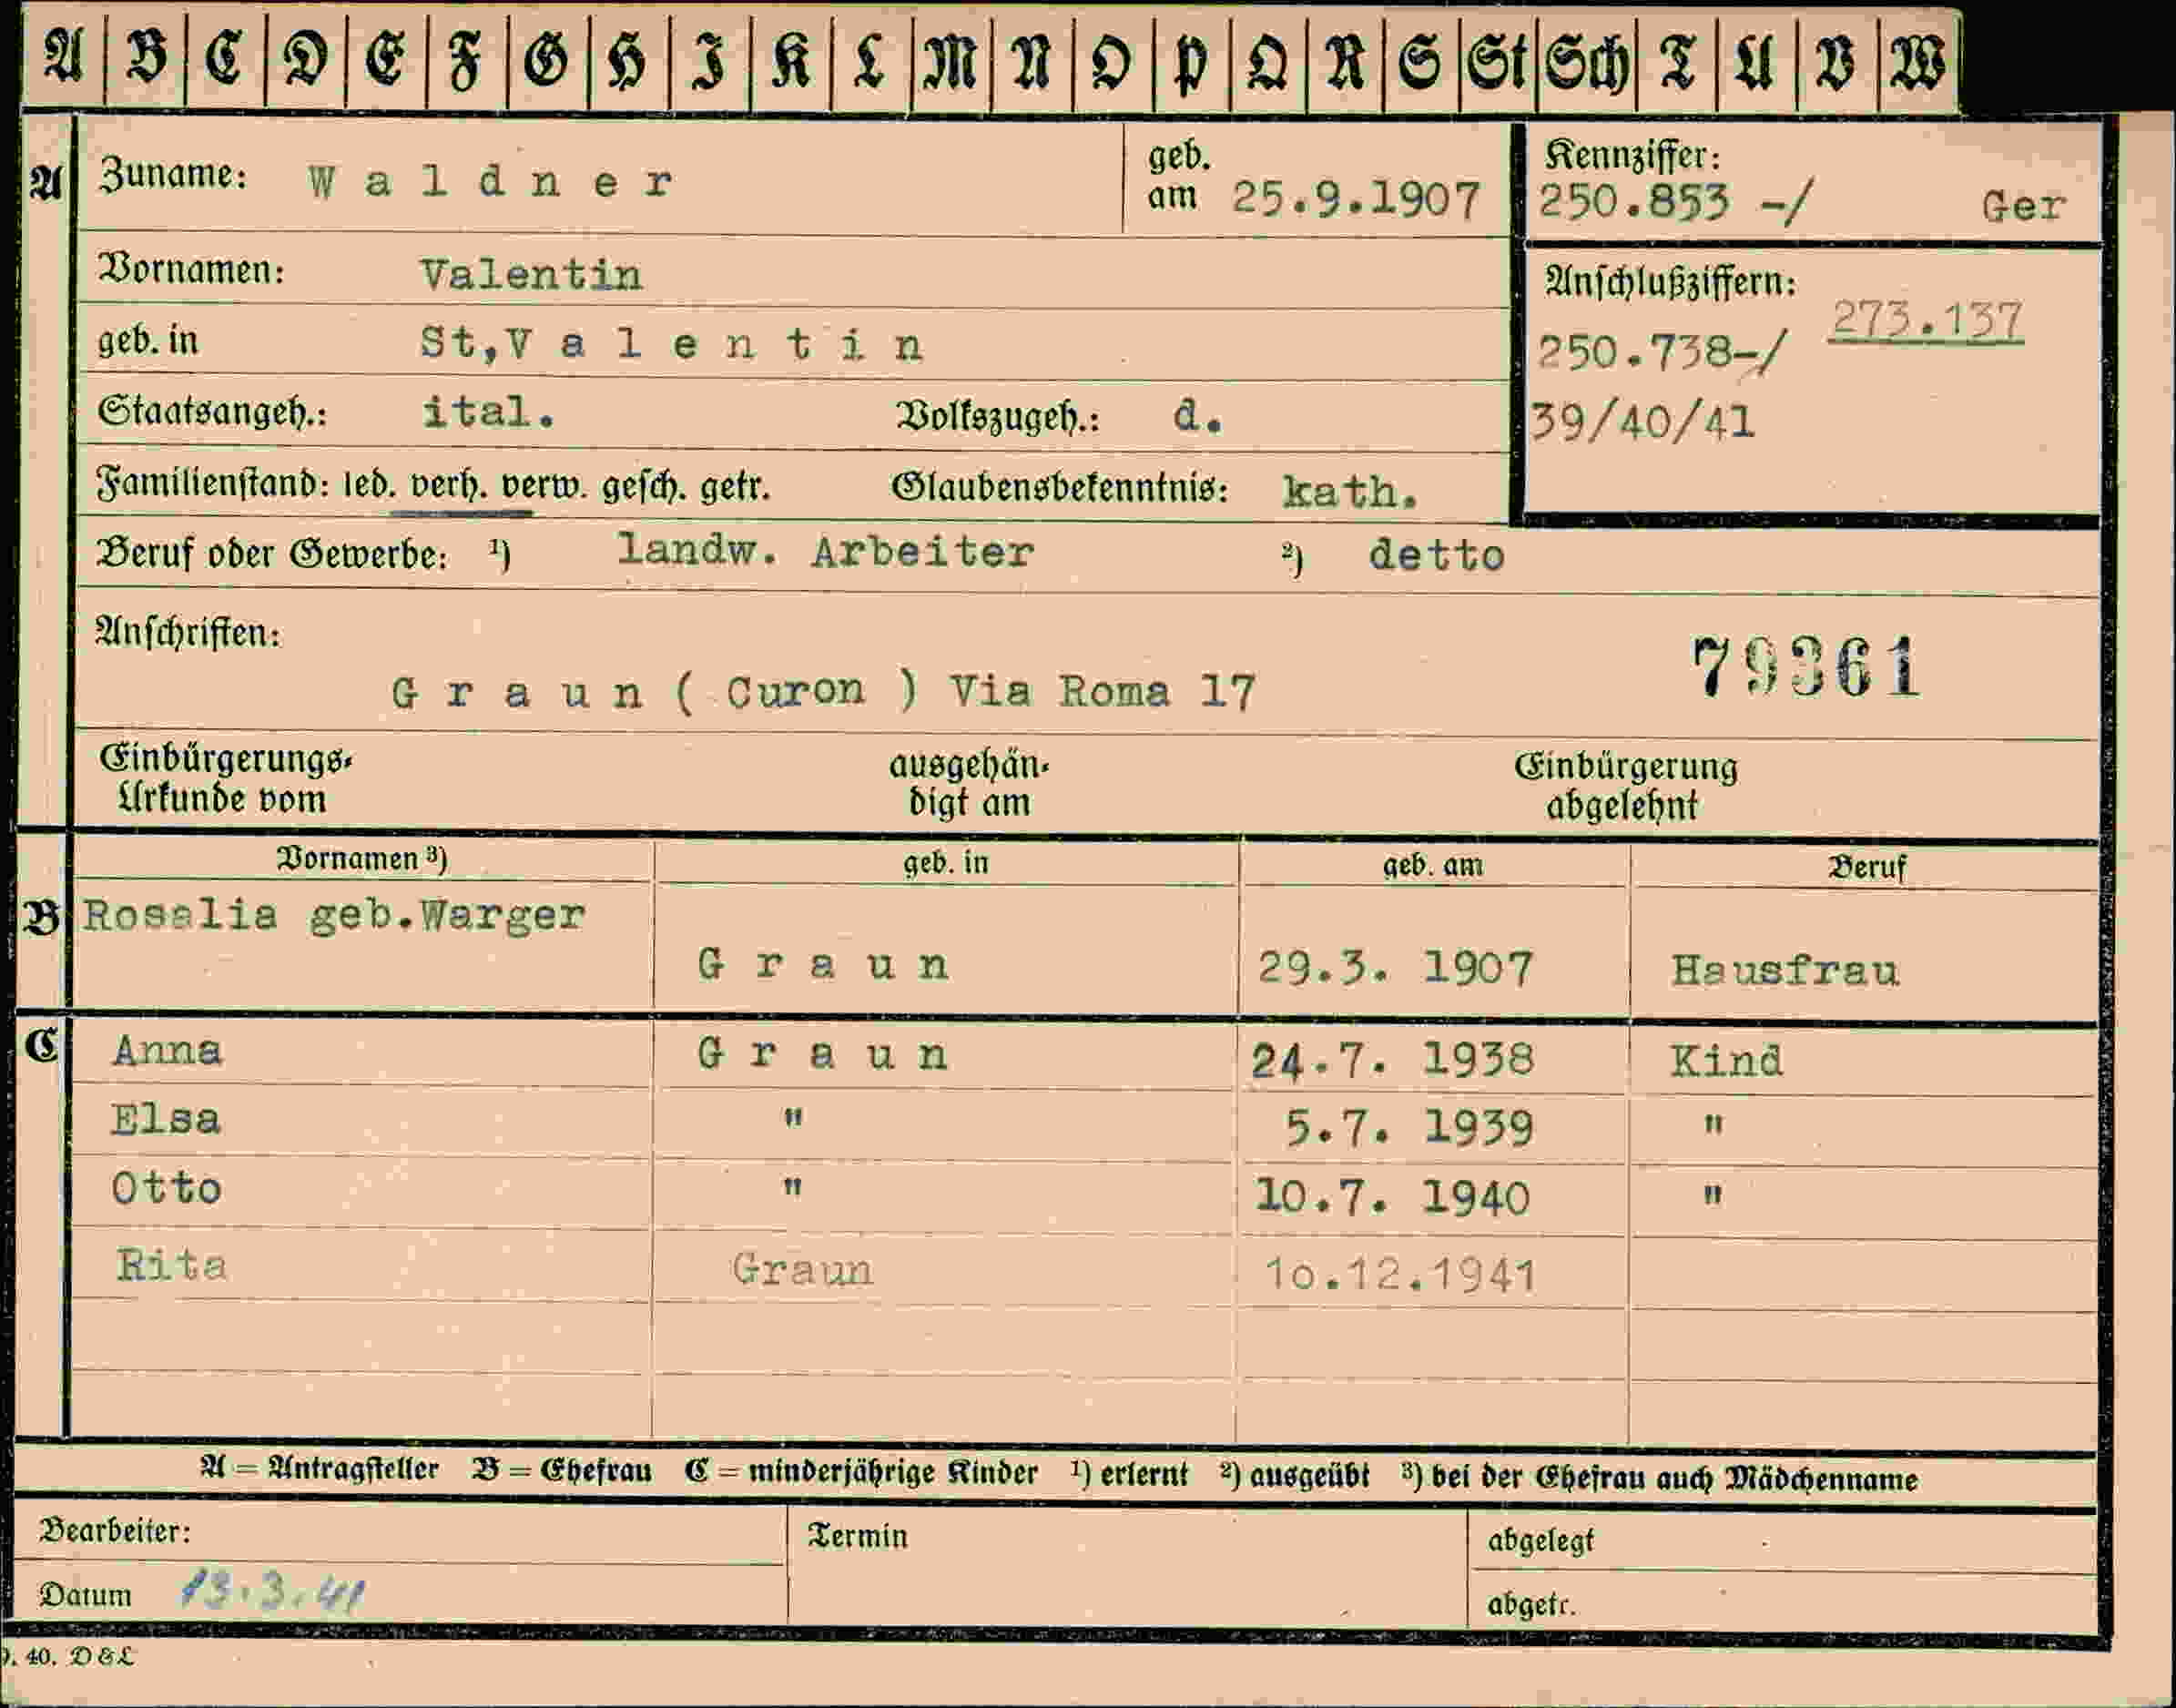 A B C D E F G H I K L M N O P Q R S St Sch T U V W
A Zuname: Waldner geb. am 25.9.1907
Kennziffer:
250.853 -/ Ger
Vornamen: Valentin
Anschlußziffern:
273.137
geb. in St,Valentin
250.738-/
Staatsangeh.: ital. Volkszugeh.: d.
39/40/41
Familienstand: led. verh. verw. gesch. getr. Glaubensbekenntnis: kath.
Beruf oder Gewerbe: ¹) landw. Arbeiter ²) detto
Anschriften:
79361
Graun ( Curon ) Via Roma 17
Einbürgerungs-
Urkunde vom
ausgehän-
digt am
Einbürgerung
abgelehnt
Vornamen ³) geb. in geb. am Beruf
B Rosalia geb.Warger
Graun 29.3. 1907 Hausfrau
C Anna Graun 24.7. 1938 Kind
Elsa " 5.7. 1939 "
Otto " 10.7. 1940 "
Rita Graun 1o.12.1941
A = Antragsteller B = Ehefrau C = minderjährige Kinder ¹) erlernt ²) ausgeübt ³) bei der Ehefrau auch Mädchenname
Bearbeiter: Termin abgelegt
Datum 13.3.41 abgetr.
40. D&L